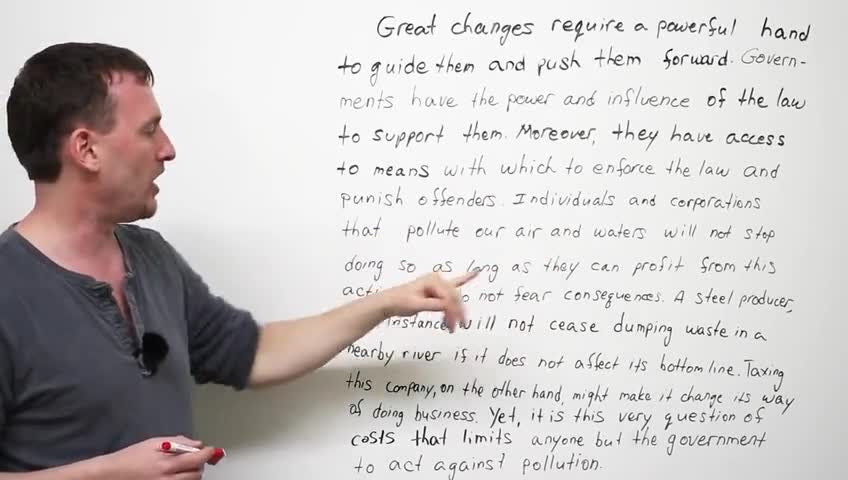 Great changes require a powerful hand
to guide them and push them forward. Govern-
ments have the power and influence of the law
to support them. Moreover, they have access
to means with which to enforce the law and
punish offenders. Individuals and corporations
that pollute our air and waters will not stop
doing so as long as they can profit from this
acti not fear consequences. A steel producer,
instance, will not cease dumping waste in a
nearby river if it does not affect its bottom line. Taxing
this company, on the other hand, might make it change its way
of doing business. Yet, it is this very question of
costs that limits anyone but the government
to act against pollution.